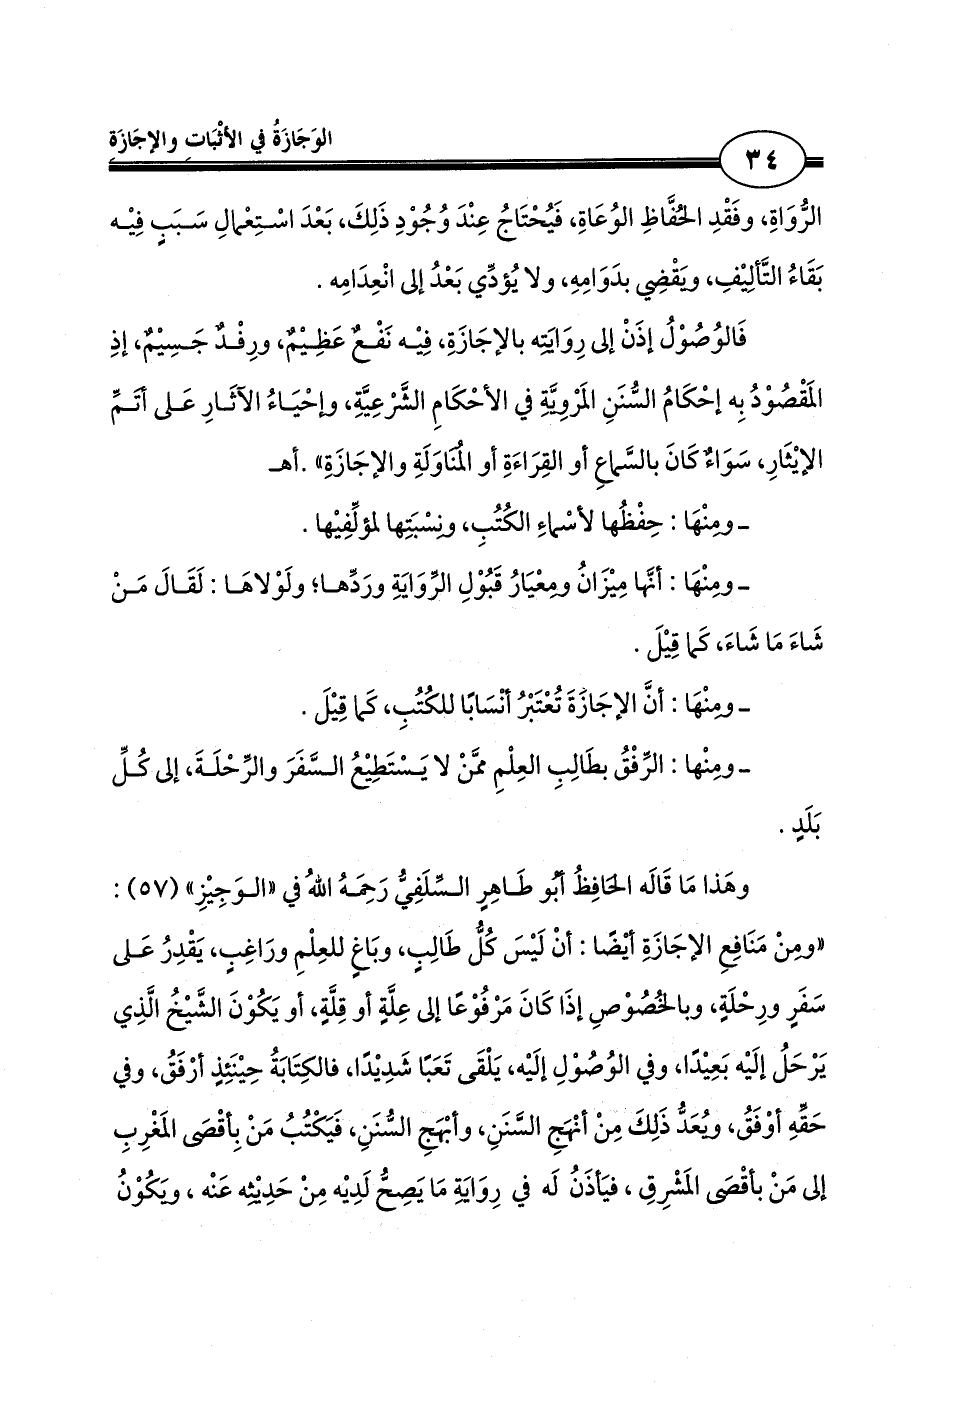 الوَجَازَةُ في الأثْبَاتِ والإجَازَةِ
٣٤
الرُّوَاةِ، وفَقْدِ الحُفَّاظِ الوُعَاةِ، فَيُحْتَاجُ عِنْدَ وُجُوْدِ ذَلِكَ، بَعْدَ اسْتِعْمالِ سَبَبٍ فِيْه
بَقَاءُ التَّأليْفِ، ويَقْضِي بدَوَامِهِ، ولا يُؤدِّي بَعْدُ إلى انْعِدَامِه .
فَالوُصُوْلُ إذَنْ إلى رِوَايَتِه بالإجَازَةِ، فِيْه نَفْعٌ عَظِيْمٌ، ورِفْدٌ جَسِيْمٌ، إذِ
المَقْصُوْدُ بِه إحْكَامُ السُّنَنِ المَرْوِيَّةِ في الأحْكَامِ الشَّرْعِيَّةِ، وإحْيَاءُ الآثَارِ عَلى أتَمِّ
الإيْثَارِ، سَوَاءٌ كَانَ بالسَّماعِ أو القِرَاءَةِ أو المُنَاوَلَةِ والإجَازَةِ» .أهـ
ـ ومِنْهَا : حِفْظُها لأسْماءِ الكُتُبِ، ونِسْبَتِها لمؤلِّفِيْها .
ـ ومِنْهَا : أنَّها مِيْزَانُ ومِعْيَارُ قَبُوْلِ الرِّوَايَةِ ورَدِّهَا؛ ولَوْلاهَا : لَقَالَ مَنْ
شَاءَ مَا شَاءَ، كَما قِيْلَ .
ـ ومِنْهَا : أنَّ الإجَازَةَ تُعْتَبَرُ أنْسَابًا للكُتُبِ، كَما قِيْلَ .
ـ ومِنْها : الرِّفْقُ بطَالِبِ العِلْمِ ممَّنْ لا يَسْتَطِيْعُ السَّفَرَ والرِّحْلَةَ، إلى كُلِّ
بَلَدٍ .
وهَذا مَا قَالَه الحَافِظُ أبُو طَاهِرٍ السِّلَفِيُّ رَحِمَهُ اللهُ في «الوَجِيْزِ» (٥٧) :
«ومِنْ مَنَافِعِ الإجَازَةِ أيْضًا : أنْ لَيْسَ كُلُّ طَالِبٍ، وبَاغٍ للعِلْمِ ورَاغِبٍ، يَقْدِرُ عَلى
سَفَرٍ ورِحْلَةٍ، وبالخُصُوْصِ إذَا كَانَ مَرْفُوْعًا إلى عِلَّةٍ أو قِلَّةٍ، أو يَكُوْنَ الشَّيْخُ الَّذِي
يَرْحَلُ إلَيْه بَعِيْدًا، وفي الوُصُوْلِ إلَيْه، يَلْقَى تَعَبًا شَدِيْدًا، فالكِتَابَةُ حِيْنَئِذٍ أرْفَقُ، وفي
حَقِّهِ أوْفَقُ، ويُعَدُّ ذَلِكَ مِنْ أنْهَجِ السَّنَنِ، وأبْهَجِ السُّنَنِ، فَيَكْتُبُ مَنْ بأقْصَى المَغْرِبِ
إلى مَنْ بأقْصَى المَشْرِقِ ، فيَأذَنُ لَه في رِوَايَةِ مَا يَصِحُّ لَدِيْه مِنْ حَدِيْثِه عَنْه ، ويَكُوْنُ